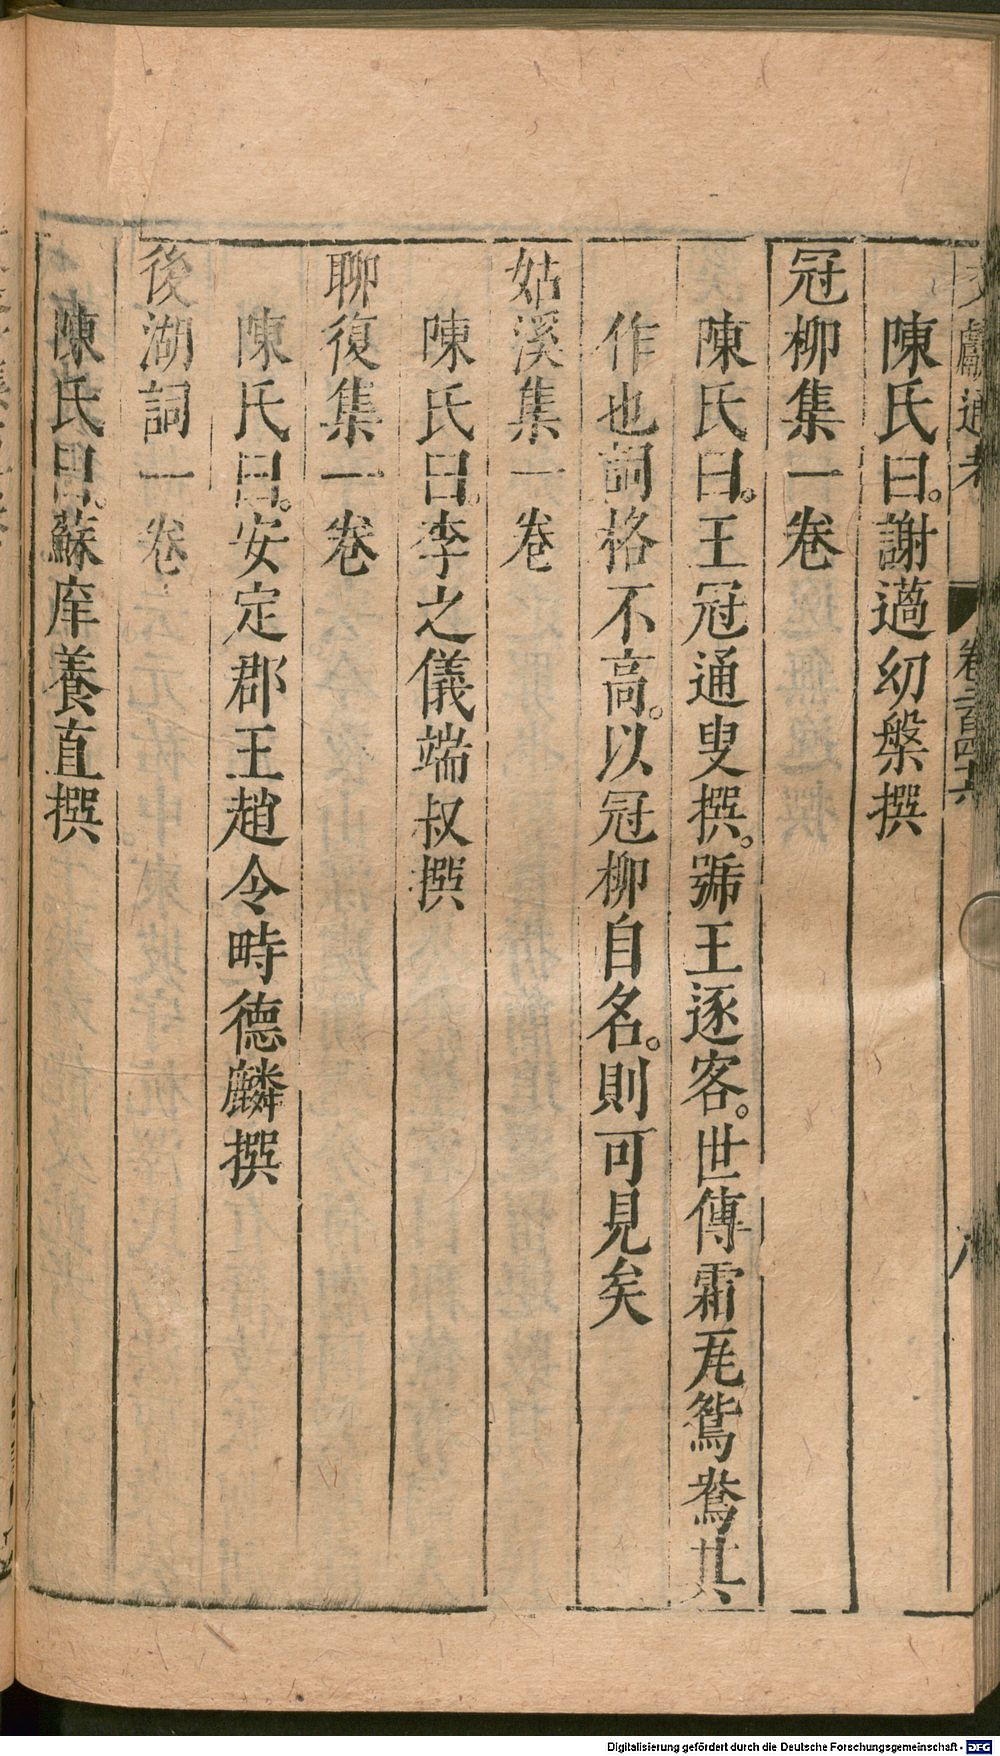 文獻通考 卷二百四十六
陳氏曰。謝薖幼槃撰
冠柳集一卷
陳氏曰。王冠通叟撰。號王逐客。世傳霜瓦鴛鴦其
作也詞格不高。以冠柳自名。則可見矣
姑溪集一卷
陳氏曰。李之儀端叔撰
聊復集一卷
陳氏曰。安定郡王趙令時德麟撰
後湖詞一卷
陳氏曰。蘇庠養直撰
Digitalisierung gefördert durch die Deutsche Forschungsgemeinschaft - DFG